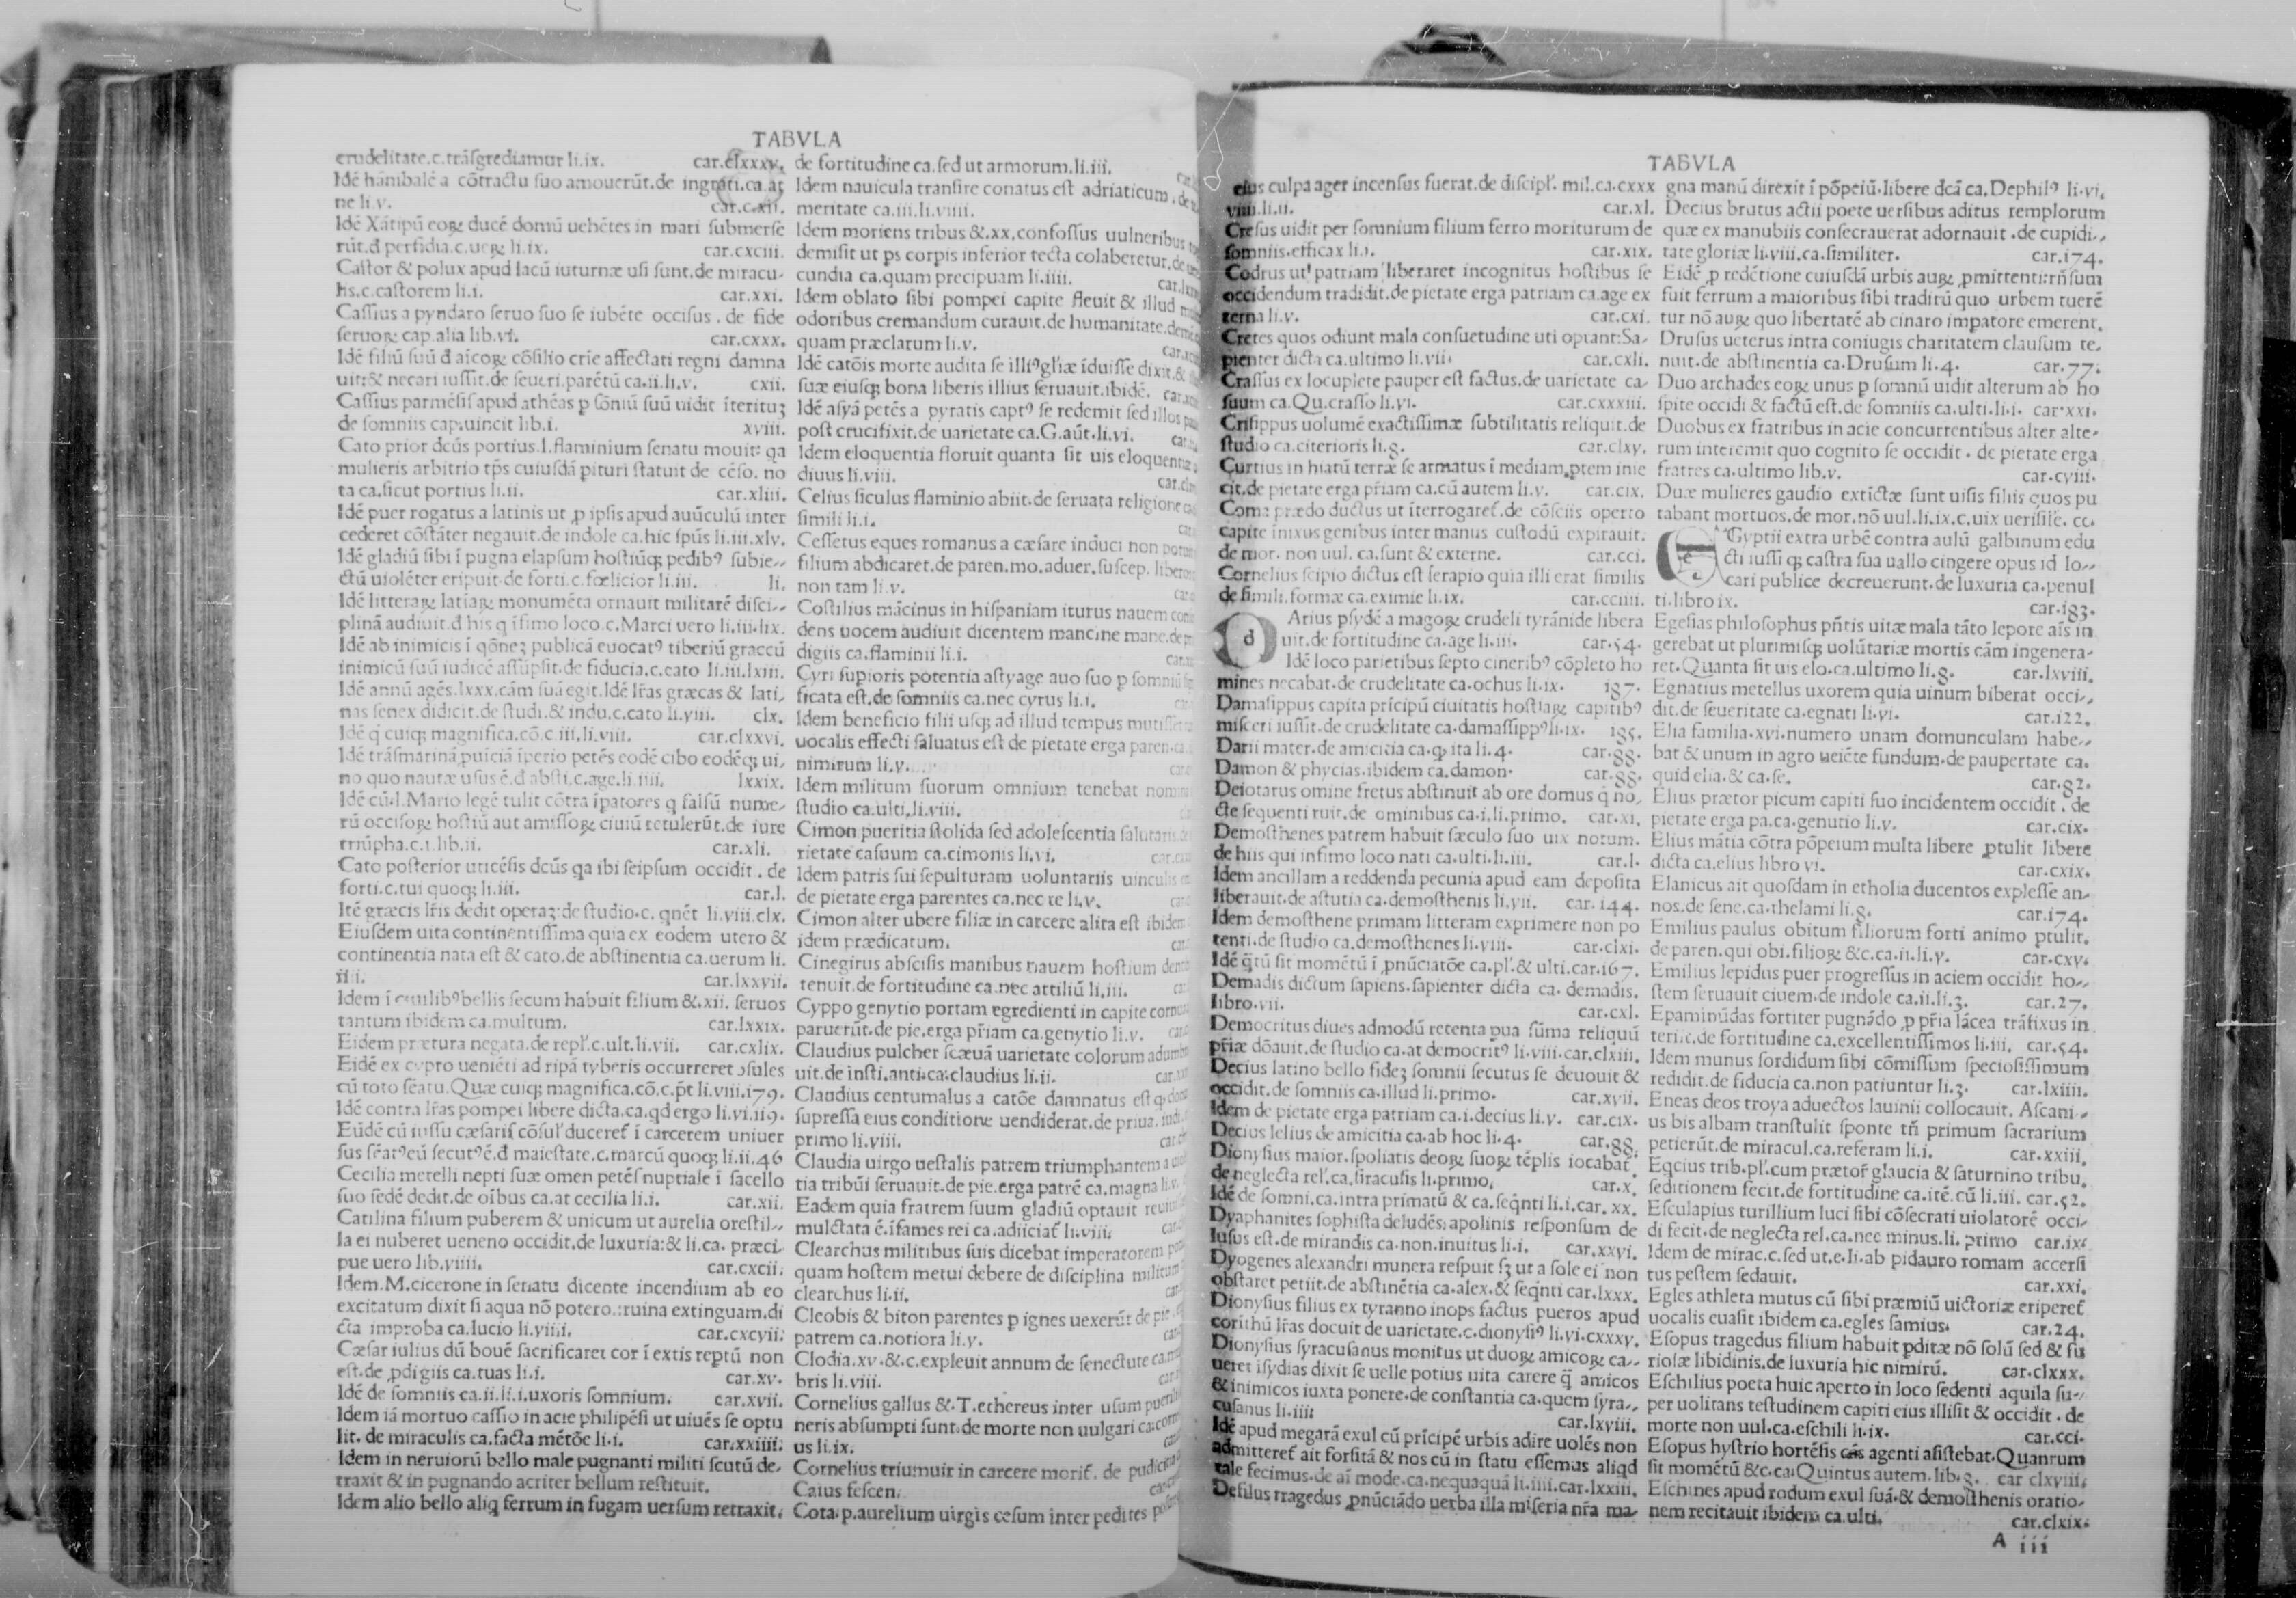 TABVLA
crudelitate.c.trãsgrediamur li.ix. car.clxxxv.
Idẽ hãnibalẽ a cõtractu suo amouerũt.de ingrati.ca.at
ne li.v. car.c.xii.
Idẽ Xãtipũ eoꝝ ducẽ domũ uehẽtes in mari submerse
rũt.đ perfidia.c.ueꝝ li.ix. car.cxciii.
Castor & polux apud lacũ iuturnæ usi sunt.de miracu-
lis.c.castorem li.i. car.xxi.
Cassius a pyndaro seruo suo se iubẽte occisus . de fide
seruoꝝ cap.alia lib.vi. car.cxxx.
Idẽ filiũ suũ đ aĩcoꝝ cõsilio crĩe affectati regni damna
uit:& necari iussit.de seueri.parẽtũ ca.ii.li.v. cxii.
Cassius parmẽsis apud athẽas ꝑ sõniũ suũ uidit ĩterituꝫ
de somniis cap.uincit lib.i. xviii.
Cato prior dcũs portius.l.flaminium senatu mouit: qa
mulieris arbitrio tp̃s cuiusdã pituri statuit de cẽso. no
ta ca.sicut portius li.ii. car.xliii.
Idẽ puer rogatus a latinis ut ꝓ ipsis apud auũculũ inter
cederet cõstãter negauit.de indole ca.hic sp̃us li.iii.xlv.
Idẽ gladiũ sibi ĩ pugna elapsum hostiũqꝫ pedibꝰ subie-
ctũ uiolẽter eripuit.de forti.c.fœlicior li.iii. li.
Idẽ litteraꝝ latiaꝝ monumẽta ornauit militarẽ disci-
plinã audiuit.đ his q ĩfimo loco.c.Marci uero li.iii.lix.
Idẽ ab inimicis ĩ qõneꝫ publicã euocatꝰ tiberiũ graccũ
inimicũ suũ iudicẽ assũpsit.de fiducia.c.cato li.iii.lxiii.
Idẽ annũ agẽs.lxxx.cãm suã egit.Idẽ lr̃as græcas & lati-
nas senex didicit.de studi.& indu.c.cato li.viii. clx.
Idẽ q̃ cuiqꝫ magnifica.cõ.c.iii.li.viii. car.clxxvi.
Idẽ trãsmarinã,puiciã ĩperio petẽs eodẽ cibo eodẽqꝫ ui-
no quo nautæ usus ẽ.đ absti.c.age.li.iiii. lxxix.
Idẽ cũ.l.Mario legẽ tulit cõtra ĩpatores q falsũ nume-
rũ occisoꝝ hostiũ aut amissoꝝ ciuiũ retulerũt.de iure
triũpha.c.i.lib.ii. car.xli.
Cato posterior uticẽsis dcũs qa ibi seipsum occidit . de
forti.c.tui quoqꝫ li.iii. car.l.
Itẽ græcis lr̃is dedit operaꝫ:de studio.c. qnẽt li.viii.clx.
Eiusdem uita continentissima quia ex eodem utero &
continentia nata est & cato.de abstinentia ca.uerum li.
iiii. car.lxxvii.
Idem ĩ ciuilibꝰ bellis secum habuit filium &.xii. seruos
tantum ibidem ca.multum. car.lxxix.
Eidem prætura negata.de repl'.c.ult.li.vii. car.cxlix.
Eidẽ ex cypro ueniẽti ad ripã tyberis occurreret ɔsules
cũ toto sẽatu.Quæ cuiqꝫ magnifica.cõ.c.p̃t li.viii.179.
Idẽ contra lr̃as pompei libere dicta.ca.qd ergo li.vi.119.
Eũdẽ cũ iussu cæsaris cõsul' duceret ĩ carcerem uniuer
sus sẽatꝰ eũ secutꝰ ẽ.đ maiestate.c.marcũ quoqꝫ li.ii.46
Cecilia metelli nepti suæ omen petẽs nuptiale ĩ sacello
suo sedẽ dedit.de oĩbus ca.at cecilia li.i. car.xii.
Catilina filium puberem & unicum ut aurelia orestil-
la ei nuberet ueneno occidit.de luxuria:& li.ca. præci-
pue uero lib.viiii. car.cxcii.
Idem.M.cicerone in senatu dicente incendium ab eo
excitatum dixit si aqua nõ potero.:ruina extinguam.di
cta improba ca.lucio li.viiii. car.cxcvii.
Cæsar iulius dũ bouẽ sacrificaret cor ĩ extis reptũ non
est.de ꝓdigiis ca.tuas li.i. car.xv.
Idẽ de somniis ca.ii.li.i.uxoris somnium. car.xvii.
Idem iã mortuo cassio in acie philipẽsi ut uiuẽs se optu
lit. de miraculis ca.facta mẽtõe li.i. car.xxiiii.
Idem in neruiorũ bello male pugnanti militi scutũ de-
traxit & in pugnando acriter bellum restituit.
Idem alio bello aliq̃ ferrum in fugam uersum retraxit.
de fortitudine ca.sed ut armorum.li.iii.
Idem nauicula transire conatus est adriaticum . de
meritate ca.iii.li.viiii.
Idem moriens tribus &.xx.confossus uulneribus
demisit ut ps corpis inferior tecta colaberetur.de
cundia ca.quam precipuam li.iiii.
Idem oblato sibi pompei capite fleuit & illud
odoribus cremandum curauit.de humanitate.
quam præclarum li.v.
Idẽ catõis morte audita se illiꝰ gl'iæ ĩduisse dixit.&
suæ eiusqꝫ bona liberis illius seruauit.ibidẽ.
Idẽ asyã petẽs a pyratis captꝰ se redemit sed illos
post crucifixit.de uarietate ca.G.aũt.li.vi.
Idem eloquentia floruit quanta sit uis eloquentiæ
diuus li.viii.
Celius siculus flaminio abiit.de seruata religione
simili li.i.
Cessetus eques romanus a cæsare induci non
filium abdicaret.de paren.mo.aduer.suscep.
non tam li.v.
Costilius mãcinus in hispaniam iturus nauem
dens uocem audiuit dicentem mancine mane.de
digiis ca.flaminii li.i.
Cyri supioris potentia astyage auo suo ꝑ somniũ
ficata est.de somniis ca.nec cyrus li.i.
Idem beneficio filii usqꝫ ad illud tempus
uocalis effecti saluatus est de pietate erga paren.
nimirum li.v.
Idem militum suorum omnium tenebat
studio ca.ulti.li.viii.
Cimon pueritia stolida sed adolescentia
rietate casuum ca.cimonis li.vi.
Idem patris sui sepulturam uoluntariis uinculis
de pietate erga parentes ca.nec te li.v.
Cimon alter ubere filiæ in carcere alita est ibidem
idem prædicatum.
Cinegirus abscisis manibus nauem hostium
tenuit.de fortitudine ca.nec attiliũ li.iii.
Cyppo genytio portam egredienti in capite
paruerũt.de pie.erga pr̃iam ca.genytio li.v.
Claudius pulcher scæuã uarietate colorum
uit.de insti.anti.ca:claudius li.ii.
Claudius centumalus a catõe damnatus est
supressa eius conditione uendiderat.de priua.
primo li.viii.
Claudia uirgo uestalis patrem triumphantem a
tia tribũi seruauit.de pie.erga patrẽ ca.magna li.v.
Eadem quia fratrem suum gladiũ optauit
mulctata ẽ.ĩfames rei ca.adiiciat li.viii.
Clearchus militibus suis dicebat imperatorem
quam hostem metui debere de disciplina
clearchus li.ii.
Cleobis & biton parentes ꝑ ignes uexerũt de pie.
patrem ca.notiora li.v.
Clodia.xv.&.c.expleuit annum de senectute
bris li.viii.
Cornelius gallus &.T.ethereus inter usum
neris absumpti sunt.de morte non uulgari
us li.ix.
Cornelius triumuir in carcere morit. de
Caius fescen.
Cota.p.aurelium uirgis cesum inter pedites
TABVLA
eius culpa ager incensus fuerat.de discipl'. mil.ca.cxxx
viiii.li.ii. car.xl.
Cresus uidit per somnium filium ferro moriturum de
somniis.efficax li.i. car.xix.
Codrus ut patriam liberaret incognitus hostibus se
occidendum tradidit.de pietate erga patriam ca.age ex
terna li.v. car.cxi.
Cretes quos odiunt mala consuetudine uti optant:Sa-
pienter dicta ca.ultimo li.vii. car.cxli.
Crassus ex locuplete pauper est factus.de uarietate ca-
suum ca.Qu.crasso li.vi. car.cxxxiii.
Crisippus uolumẽ exactissimæ subtilitatis reliquit.de
studio ca.citerioris li.8. car.clxv.
Curtius in hiatũ terræ se armatus ĩ mediam,ptem inie
cit.de pietate erga pr̃iam ca.cũ autem li.v. car.cix.
Coma prædo ductus ut ĩterrogaret. de cõsciis operto
capite inixus genibus inter manus custodũ expirauit.
de mor. non uul. ca.sunt & externe. car.cci.
Cornelius scipio dictus est serapio quia illi erat similis
de simili.formæ ca.eximie li.ix. car.cciiii.
d Arius psydẽ a magoꝝ crudeli tyrãnide libera
uit.de fortitudine ca.age li.iii. car.54.
Idẽ loco parietibus septo cineribꝰ cõpleto ho
mines necabat.de crudelitate ca.ochus li.ix. 187.
Damasippus capita prĩcipũ ciuitatis hostiaꝝ capitibꝰ
misceri iussit.de crudelitate ca.damassippꝰ li.ix. 185.
Darii mater.de amicitia ca.q̨ ita li.4. car.88.
Damon & phycias.ibidem ca.damon. car.88.
Deiotarus omine fretus abstinuit ab ore domus q̃ no-
cte sequenti ruit.de ominibus ca.i.li.primo. car.xi.
Demosthenes patrem habuit sæculo suo uix notum.
de hiis qui infimo loco nati ca.ulti.li.iii. car.l.
Idem ancillam a reddenda pecunia apud eam deposita
liberauit.de astutia ca.demosthenis li.vii. car.144.
Idem demosthene primam litteram exprimere non po
tenti.de studio ca.demosthenes li.viii. car.clxi.
Idẽ q̃tũ sit momẽtũ ĩ ꝓnũciatõe ca.pl'.& ulti.car.167.
Demadis dictum sapiens.sapienter dicta ca. demadis.
libro.vii. car.cxl.
Democritus diues admodũ retenta ꝑua sũma reliquũ
pr̃iæ dõauit.de studio ca.at democritꝰ li.viii.car.clxiii.
Decius latino bello fideꝫ somnii secutus se deuouit &
occidit.de somniis ca.illud li.primo. car.xvii.
Idem de pietate erga patriam ca.i.decius li.v. car.cix.
Decius lelius de amicitia ca.ab hoc li.4. car.88.
Dionysius maior.spoliatis deoꝝ suoꝝ tẽplis iocabat.
de neglecta rel'.ca.siraculis li.primo. car.x.
Idẽ de somni.ca.intra primatũ & ca.seq̃nti li.i.car. xx.
Dyaphanites sophista deludẽs: apolinis responsum de
lusus est.de mirandis ca.non.inuitus li.i. car.xxvi.
Dyogenes alexandri munera respuit sꝫ ut a sole ei non
obstaret petiit.de abstinẽtia ca.alex.& seq̃nti car.lxxx.
Dionysius filius ex tyranno inops factus pueros apud
corithũ lr̃as docuit de uarietate.c.dionysiꝰ li.vi.cxxxv.
Dionysius syracusanus monitus ut duoꝝ amicoꝝ ca-
ueret isydias dixit se uelle potius uita carere q̃ amicos
& inimicos iuxta ponere.de constantia ca.quem syra-
cusanus li.iiii: car.lxviii.
Idẽ apud megarã exul cũ prĩcipẽ urbis adire uolẽs non
admitteret ait forsitã & nos cũ in statu essemus aliqd
tale fecimus.de aĩ mode.ca.nequaquã li.iiii.car.lxxiii.
Desilus tragedus ꝓnũciãdo uerba illa miseria nr̃a ma-
gna manũ direxit ĩ põpeiũ.libere dcã ca.Dephilꝰ li.vi.
Decius brutus actii poete uersibus aditus templorum
quæ ex manubiis consecrauerat adornauit .de cupidi-
tate gloriæ li.viii.ca.similiter. car.174.
Eidẽ ꝓ redẽtione cuiusdã urbis auꝝ ꝓmittenti:rñsum
fuit ferrum a maioribus sibi traditũ quo urbem tuerẽ
tur nõ auꝝ quo libertatẽ ab cinaro impatore emerent.
Drusus ueterus intra coniugis charitatem clausum te-
nuit.de abstinentia ca.Drusum li.4. car.77.
Duo archades eoꝝ unus ꝑ somnũ uidit alterum ab ho
spite occidi & factũ est.de somniis ca.ulti.li.i. car.xxi.
Duobus ex fratribus in acie concurrentibus alter alte-
rum interemit quo cognito se occidit . de pietate erga
fratres ca.ultimo lib.v. car.cviii.
Duæ mulieres gaudio extĩctæ sunt uisis filiis quos pu
tabant mortuos.de mor.nõ uul.li.ix.c.uix uerisil'e. cc.
e Gyptii extra urbẽ contra aulũ galbinum edu
cti iussi qꝫ castra sua uallo cingere opus id lo-
cari publice decreuerunt.de luxuria ca.penul
ti.libro ix. car.183.
Egesias philosophus pñtis uitæ mala tãto lepore aĩs in
gerebat ut plurimisqꝫ uolũtariæ mortis cãm ingenera-
ret.Quanta sit uis elo.ca.ultimo li.8. car.lxviii.
Egnatius metellus uxorem quia uinum biberat occi-
dit.de seueritate ca.egnati li.vi. car.122.
Elia familia.xvi.numero unam domunculam habe-
bat & unum in agro ueiẽte fundum.de paupertate ca.
quid elia.& ca.se. car.82.
Elius prætor picum capiti suo incidentem occidit . de
pietate erga pa.ca.genutio li.v. car.cix.
Elius mãtia cõtra põpeium multa libere ꝓtulit libere
dicta ca.elius libro vi. car.cxix.
Elanicus ait quosdam in etholia ducentos explesse an-
nos.de sene.ca.thelami li.8. car.174.
Emilius paulus obitum filiorum forti animo ptulit.
de paren.qui obi.filioꝝ &c.ca.ii.li.v. car.cxv.
Emilius lepidus puer progressus in aciem occidit ho-
stem seruauit ciuem.de indole ca.ii.li.3. car.27.
Epaminũdas fortiter pugnãdo ꝓ pr̃ia lãcea trãfixus in
teriit.de fortitudine ca.excellentissimos li.iii. car.54.
Idem munus sordidum sibi cõmissum speciosissimum
redidit.de fiducia ca.non patiuntur li.3. car.lxiiii.
Eneas deos troya aduectos lauinii collocauit. Ascani-
us bis albam transtulit sponte tñ primum sacrarium
petierũt.de miracul.ca.referam li.i. car.xxiii.
Eqcius trib.pl'.cum prætor glaucia & saturnino tribu.
seditionem fecit.de fortitudine ca.itẽ.cũ li.iii. car.52.
Esculapius turillium luci sibi cõsecrati uiolatorẽ occi-
di fecit.de neglecta rel.ca.nec minus.li. primo car.ix.
Idem de mirac.c.sed ut.e.li.ab pidauro romam accersi
tus pestem sedauit. car.xxi.
Egles athleta mutus cũ sibi præmiũ uictoriæ eriperet
uocalis euasit ibidem ca.egles samius. car.24.
Esopus tragedus filium habuit ꝑditæ nõ solũ sed & fu
riosæ libidinis.de luxuria hic nimirũ. car.clxxx.
Eschilius poeta huic aperto in loco sedenti aquila su-
per uolitans testudinem capiti eius illisit & occidit . de
morte non uul.ca.eschili li.ix. car.cci.
Esopus hystrio hortẽsis cãs agenti asistebat.Quantum
sit momẽtũ &c.ca:Quintus autem.lib.8. car clxviii.
Eschines apud rodum exul suã.& demosthenis oratio-
nem recitauit ibidem ca.ulti. car.clxix.
A iii